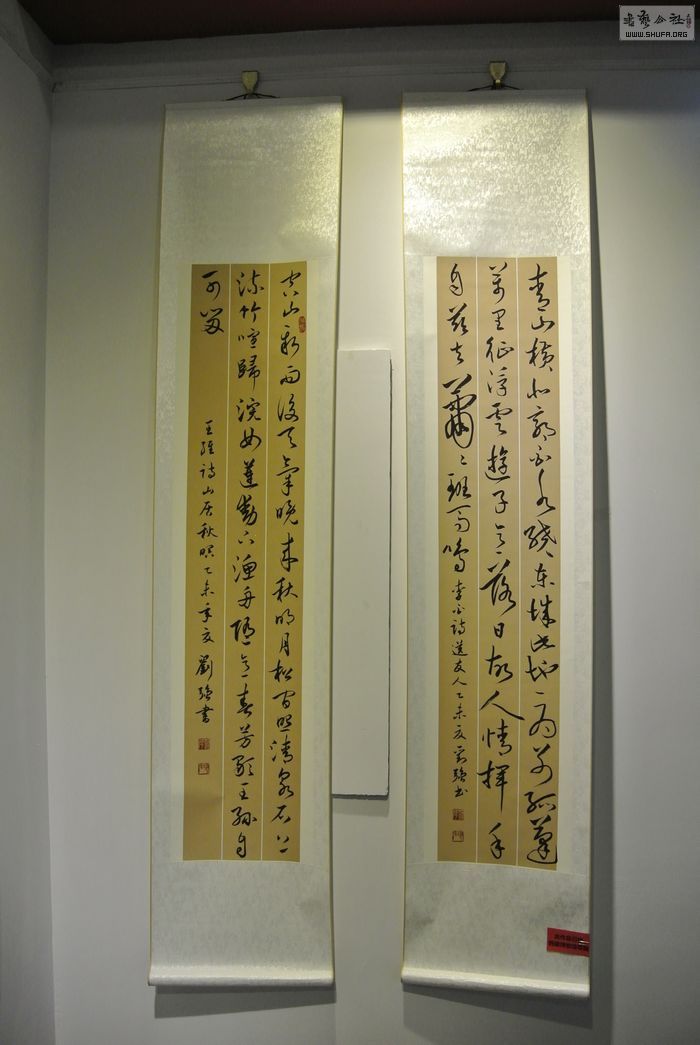 書藝公社
WWW.SHUFA.ORG
青山橫北郭白水繞東城此地一為別孤蓬
萬里征浮雲遊子意落日故人情揮手
自茲去蕭〻班馬鳴
李白詩送友人乙未夏劉強書
空山新雨後天氣晚來秋明月松間照清泉石上
流竹喧歸浣女蓮動下漁舟隨意春芳歇王孫自
可留
王維詩山居秋暝乙未年夏劉強書